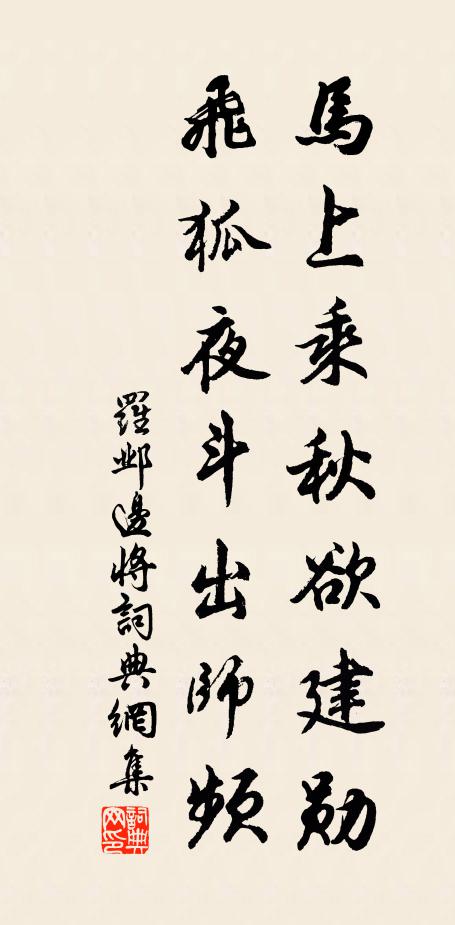 馬上乘秋欲建勛
飛狐夜斗出師頻
羅邺邊將詞典網集
詞典网印